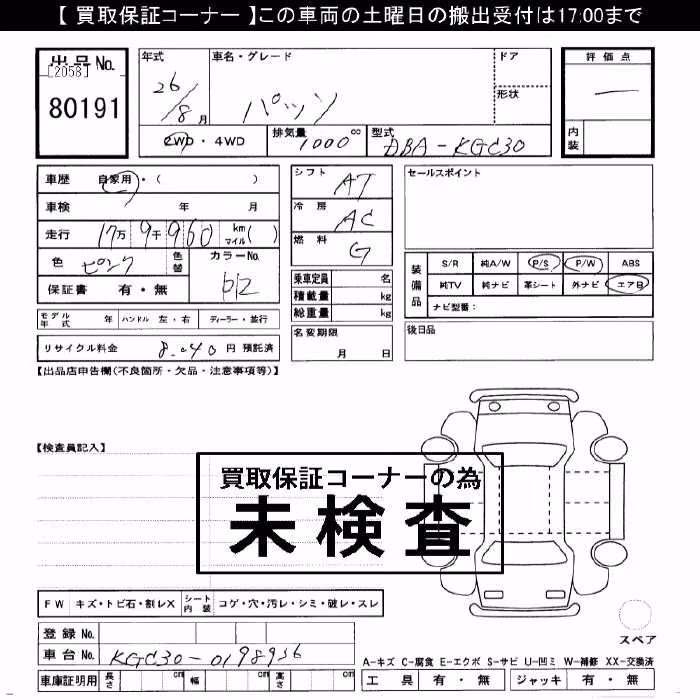 【 買取保証コーナー 】この車両の土曜日の搬出受付は17:00まで
出品No.
[2058]
80191
年式
26/8月
車名・グレード
パッソ
ドア
形状
2WD・4WD
排気量
1000 cc
型式
DBA-KGC30
評価点
一
内装
車歴 自家用・( )
車検 年 月
走行 17万 9千 960 km マイル( )
色 ピンク 色替
カラーNo.
保証書 有・無
モデル年式 年 ハンドル 左・右 ディーラー・並行
リサイクル料金 8,040 円 預託済
シフト AT
冷房 AC
燃料 G
乗車定員 名
積載量 kg
総重量 kg
名変期限
月 日
セールスポイント
装備品
S/R 純A/W P/S P/W ABS
純TV 純ナビ 革シート 外ナビ エアB
ナビ型番：
後日品
【出品店申告欄(不良箇所・欠品・注意事項等)】
【検査員記入】
買取保証コーナーの為
未検査
FW キズ・トビ石・割レX シート内装 コゲ・穴・汚レ・シミ・破レ・スレ
登録No.
車台No. KGC30-0198936
車庫証明用 長さ cm 幅 cm 高さ cm
スペア
A-キズ C-腐食 E-エクボ S-サビ U-凹ミ W-補修 XX-交換済
工具 有・無 ジャッキ 有・無